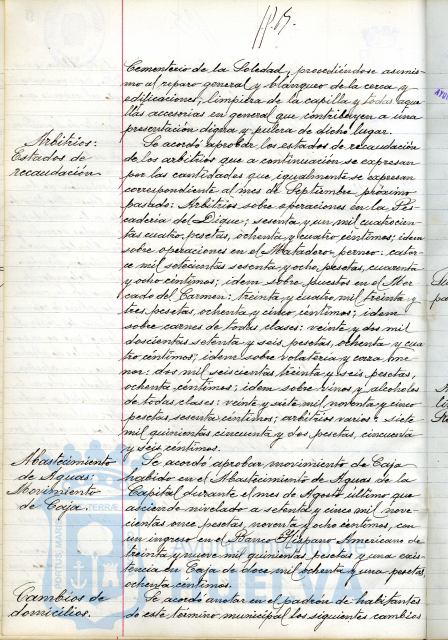 Cementerio de la Soledad, precediéndose asimis-
mo al reparo general y blanqueo de la cerca y
edificaciones, limpieza de la capilla y todas aque-
llas accesorias en general que contribuyen a una
presentación digna y pulcra de dicho lugar.
Arbitrios:
Estados de
recaudación
Se acordó aprobar los estados de recaudación
de los arbitrios que a continuación se expresan
por las cantidades que igualmente se expresan
correspondiente al mes de Septiembre próximo
pasado: Arbitrios sobre operaciones en la Pes-
cadería del Dique; sesenta y un mil cuatrocien-
tas cuatro pesetas, ochenta y cuatro céntimos; idem
sobre operaciones en el Matadero perneo: cator-
ce mil setecientas sesenta y ocho pesetas, cuarenta
y ocho céntimos; idem sobre puestos en el Mer-
cado del Carmen: treinta y cuatro mil treinta y
tres pesetas, ochenta y cinco céntimos; idem
sobre carnes de todas clases: veinte y dos mil
doscientas setenta y seis pesetas, ochenta y cua-
tro céntimos; idem sobre volatería y caza me-
nor: dos mil seiscientas treinta y seis pesetas,
ochenta céntimos; idem sobre vinos y alcoholes
de todas clases: veinte y siete mil noventa y cinco
pesetas sesenta céntimos; arbitrios varios: siete
mil quinientas cincuenta y dos pesetas, cincuenta
y seis céntimos.
Abastecimiento
de Aguas:
Movimiento
de Caja.
Se acordó aprobar movimiento de Caja
habido en el Abastecimiento de Aguas de la
Capital durante el mes de Agosto último que
asciende nivelado a setenta y cinco mil nove-
cientas once pesetas, noventa y ocho céntimos, con
un ingreso en el Banco Hispano Americano de
treinta y nueve mil quinientas pesetas y una exis-
tencia en Caja de doce mil ochenta y una pesetas,
ochenta céntimos.
Cambios de
domicilios.
Se acordó anotar en el padrón de habitantes
de este término municipal los siguientes cambios